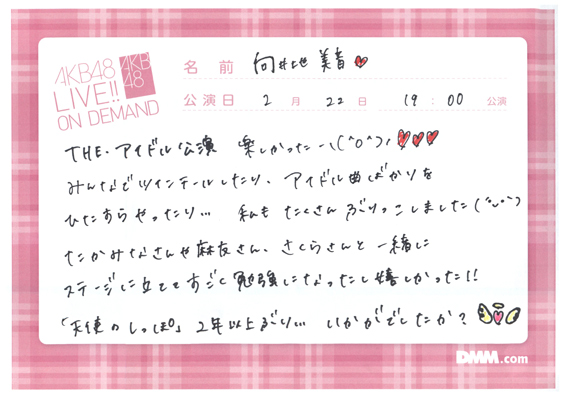 AKB48
LIVE!!
ON DEMAND
AKB
48
名前 向井地 美音
公演日 2月 22日 19:00 公演
THE・アイドル公演 楽しかったー\(^o^)/
みんなでツインテールしたり、アイドル曲ばかりを
ひたすらやったり… 私も たくさん ぶりっこしました(˘ᵕ˘)
たかみなさんや麻友さん、さくらさんと 一緒に
ステージに立ててすごく勉強になったし嬉しかった!!
「天使のしっぽ」2年以上ぶり… いかがでしたか?
DMM.com